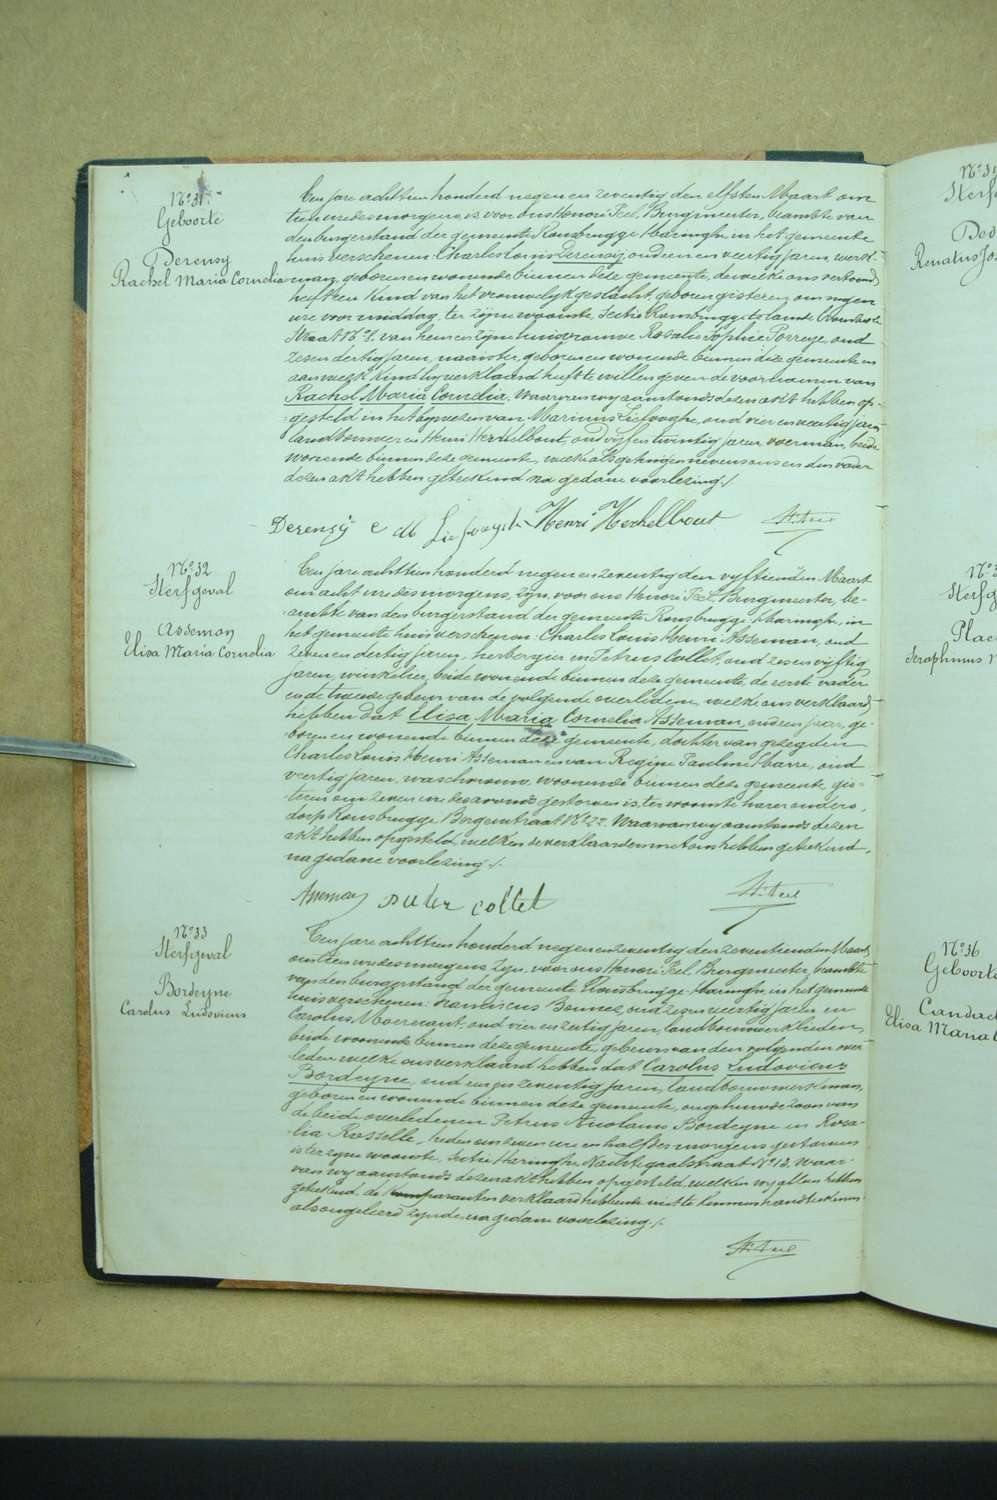 Nº 31.
Geboorte
Derensy
Rachel Maria Cornelia
Ten jare achttien honderd negen en zeventig den elfsten Maart om
tien ure des morgens, is voor ons Honoré Feel, Burgmeester, beambte van
den burgerstand der gemeente Rousbrugge Haringhe, in het gemeente
huis verschenen Charles Louis Derensy, oud een en veertig jaren, werk-
man, geboren en wonende binnen deze gemeente, dewelke ons vertoond
heeft een kind van het vrouwelyk geslacht, geboren gisteren om negen
ure voor middag, ter zyne woonste, Sectie Rousbrugge
Straat Nº 8. van hem en zyne huisvrouwe Rosalie Sophie Porreye, oud
zes en dertig jaren, naaister, geboren en wonende binnen deze gemeente en
aan welk kind hy verklaard heeft te willen geven de voornamen van
Rachel Maria Cornelia. Waarvan wy aanstonds dezen akt hebben op-
gesteld in het bywezen van Marinus Liefooghe, oud vier en veertig jaren
landbouwer en Henri Herkelbout, oud vyf en twintig jaren, voerman, beide
wonende binnen deze gemeente, welke als getuigen nevens ons en den vader
dezen akt hebben geteekend na gedane voorlezing./.
Derensy C Henri Herkelbout H. Feel
Nº 32
Sterfgeval
Asseman
Elisa Maria Cornelia
Ten jare achttien honderd negen en zeventig den vyftienden Maart
om acht ure des morgens, zyn, voor ons Honoré Feel, Burgmeester, be-
ambte van den burgerstand der gemeente Rousbrugge Haringhe, in
het gemeente huis verschenen: Charles Louis Henri Asseman, oud
zeven en dertig jaren, herbergier en Petrus Collet, oud zes en vyftig
jaren, winkelier, beide wonende binnen deze gemeente, de eerste vader
en de tweede gebuur van de volgende overledene, welke ons verklaard
hebben dat Elisa Maria Cornelia Asseman, oud een jaar, ge-
boren en wonende binnen deze gemeente, dochter van gezegden
Charles Louis Henri Asseman en van Regine Pauline Harre, oud
veertig jaren, waschvrouw, woonende binnen deze gemeente gis-
teren om zeven ure des avonds gestorven is, ter woonste harer ouders,
dorp Rousbrugge, Bergenstraat Nº 22. Waarvan wy aanstonds dezen
akt hebben opgesteld, welken de verklaarders met ons hebben geteekend,
na gedane voorlezing./.
Asseman Peter Collet H. Feel
Nº 33
Sterfgeval
Bordeyne
Carolus Ludovicus
Ten jare achttien honderd negen en zeventig den zeventienden Maart
om tien ure des morgens zyn, voor ons Honoré Feel, Burgmeester, beambte
van den burgerstand der gemeente Rousbrugge-Haringhe, in het gemeente
huis verschenen: Franciscus Bonnez, oud zes en veertig jaren en
Carolus Moerenout, oud vier en zestig jaren, landbouwwerklieden,
beide woonende binnen deze gemeente, gebeurs van den volgenden over-
leden welke ons verklaard hebben dat Carolus Ludovicus
Bordeyne, oud een en zeventig jaren, landbouwwerkman,
geboren en wonende binnen deze gemeente, ongehuwde zoon van
de beide overledenen Petrus Nicolaus Bordeyne en Rosa-
lia Rosselle, heden om zeven ure en half des morgens gestorven
is ter zyne woonste, Sectie Haringhe, Nachtegaalstraat Nº 13. Waar-
van wy aanstonds dezen akt hebben opgesteld, welken wy alleen hebben
geteekend, de komparanten verklaard hebbende niet te kunnen handteekenen
als ongeleerd zynde, na gedane voorlezing./.
H. Feel
Renatus
Seraphinus
Nº 36
Geboorte
Elisa Maria